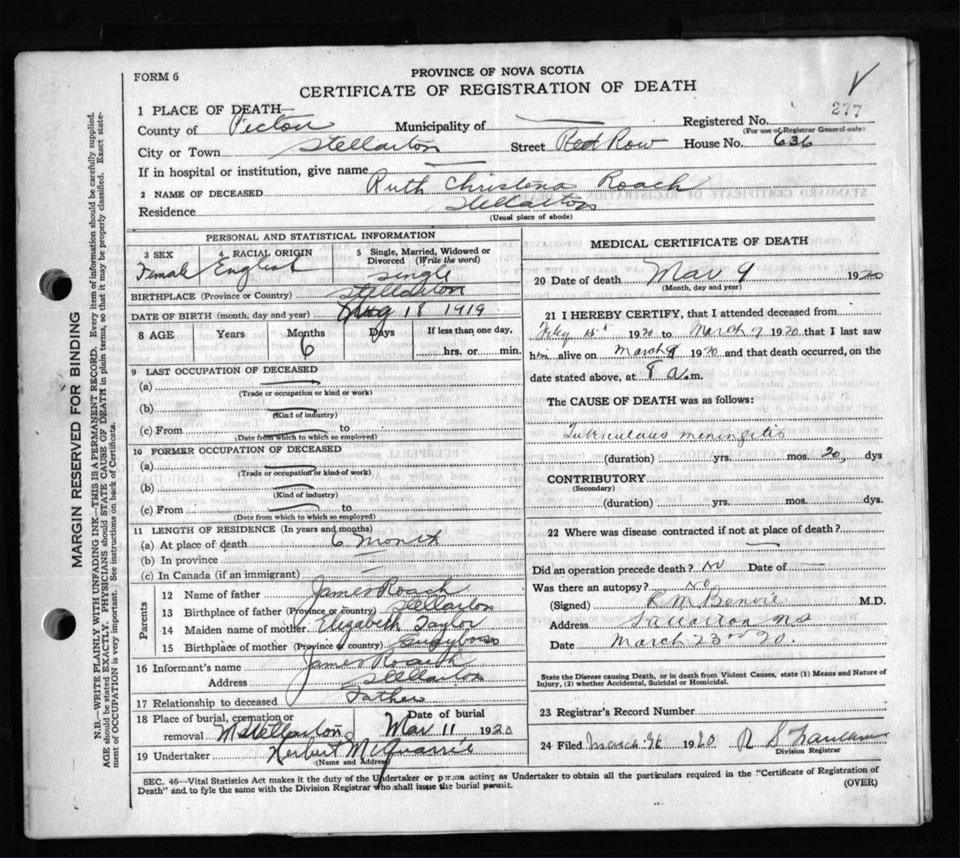 FORM 6
PROVINCE OF NOVA SCOTIA
CERTIFICATE OF REGISTRATION OF DEATH
277
1 PLACE OF DEATH—
County of Pictou Municipality of — Registered No.
(For use of Registrar General only)
City or Town Stellarton Street Red Row House No. 636
If in hospital or institution, give name —
2 NAME OF DECEASED Ruth Christena Roach
Residence Stellarton
(Usual place of abode)
PERSONAL AND STATISTICAL INFORMATION
3 SEX Female
4 RACIAL ORIGIN English
5 Single, Married, Widowed or Divorced (Write the word) single
BIRTHPLACE (Province or Country) Stellarton
DATE OF BIRTH (month, day and year) Aug 18 1919
8 AGE Years Months 6 Days If less than one day, hrs. or min.
9 LAST OCCUPATION OF DECEASED
(a) —
(Trade or occupation or kind or work)
(b) —
(Kind of industry)
(c) From — to
(Date from which to which so employed)
10 FORMER OCCUPATION OF DECEASED
(a) —
(Trade or occupation or kind of work)
(b) —
(Kind of industry)
(c) From — to
(Date from which to which so employed)
11 LENGTH OF RESIDENCE (In years and months)
(a) At place of death 6 Month
(b) In province —
(c) In Canada (if an immigrant) —
Parents
12 Name of father James Roach
13 Birthplace of father (Province or country) Stellarton
14 Maiden name of mother Elizabeth Taylor
15 Birthplace of mother (Province or country)
16 Informant's name James Roach
Address Stellarton
17 Relationship to deceased Father
18 Place of burial, cremation or removal W Stellarton Date of burial Mar 11 1920
19 Undertaker Herbert McQuarrie
(Name and Address)
MEDICAL CERTIFICATE OF DEATH
20 Date of death Mar 9 1920
(Month, day and year)
21 I HEREBY CERTIFY, that I attended deceased from
1920 to March 1920 that I last saw
h alive on March 9 1920 and that death occurred, on the
date stated above, at 8 a.m.
The CAUSE OF DEATH was as follows:
Tuberculous meningitis
(duration) yrs. mos. 20 dys
CONTRIBUTORY
(Secondary)
(duration) yrs. mos. dys.
22 Where was disease contracted if not at place of death?
—
Did an operation precede death? No Date of —
Was there an autopsy? No
(Signed) R M Benvie M.D.
Address Stellarton NS
Date March 23rd 20.
State the Disease causing Death, or in death from Violent Causes, state (1) Means and Nature of Injury, (2) whether Accidental, Suicidal or Homicidal.
23 Registrar's Record Number
24 Filed March 1920 R S
Division Registrar
SEC. 46—Vital Statistics Act makes it the duty of the Undertaker or person acting as Undertaker to obtain all the particulars required in the "Certificate of Registration of
Death" and to fyle the same with the Division Registrar who shall issue the burial permit.
(OVER)
MARGIN RESERVED FOR BINDING
N.B.—WRITE PLAINLY, WITH UNFADING INK—THIS IS A PERMANENT RECORD. Every item of information should be carefully supplied.
AGE should be stated EXACTLY. PHYSICIANS should STATE CAUSE OF DEATH in plain terms, so that it may be properly classified. Exact state-
ment of OCCUPATION is very important. See instructions on back of Certificate.